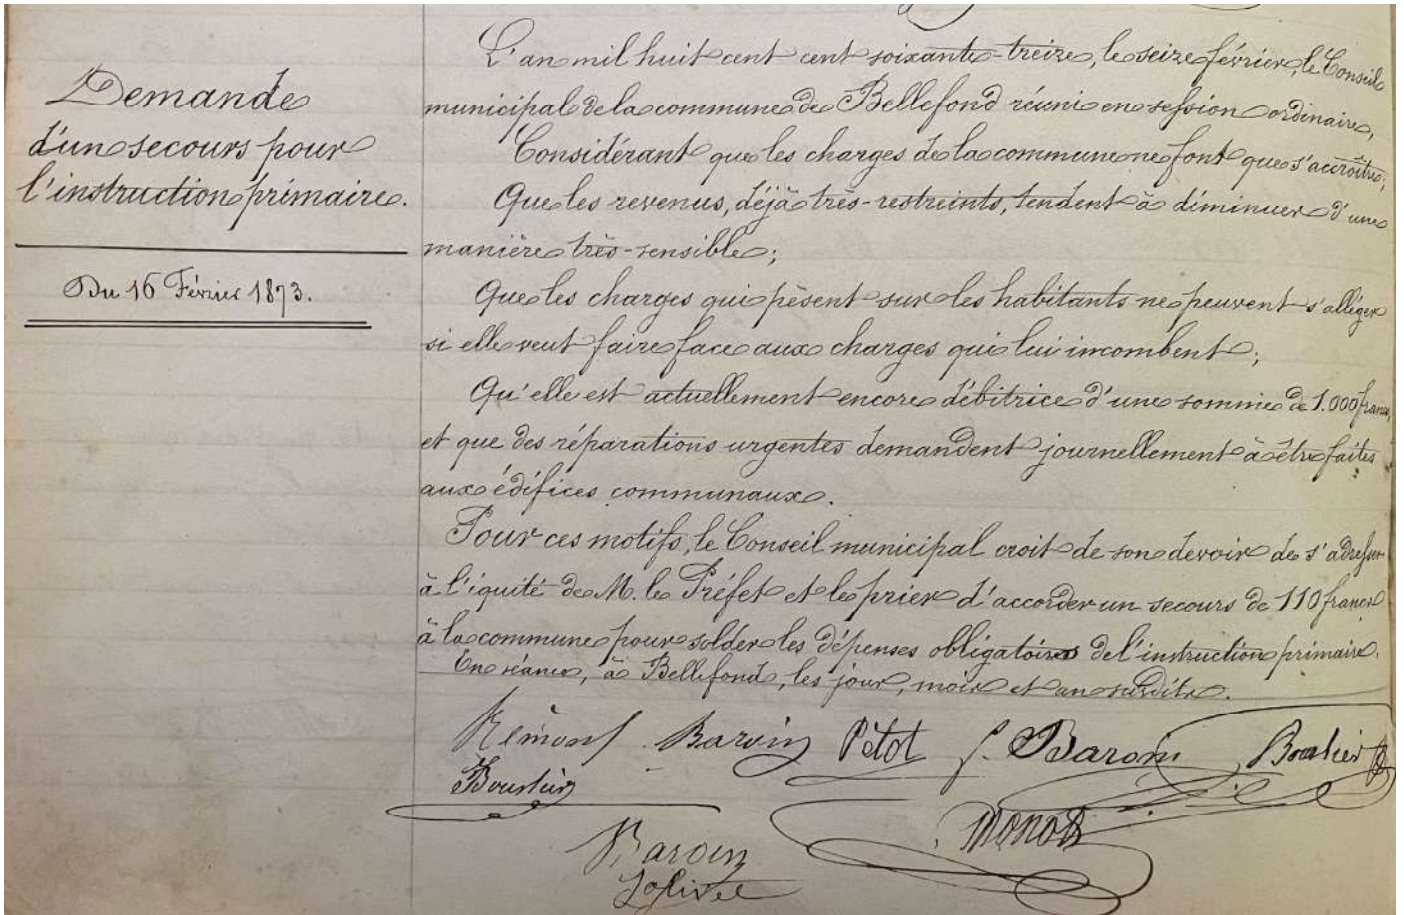 Demande
d'un secours pour
l'instruction primaire.
Du 16 Février 1873.
L'an mil huit cent cent soixante-treize, le seize février, le Conseil
municipal de la commune de Bellefond réuni en session ordinaire,
Considérant que les charges de la commune ne font que s'accroître;
Que les revenus, déjà très-restreints, tendent à diminuer d'une
manière très-sensible;
Que les charges qui pèsent sur les habitants ne peuvent s'alléger
si elle veut faire face aux charges qui lui incombent;
Qu'elle est actuellement encore débitrice d'une somme de 1.000 francs,
et que des réparations urgentes demandent journellement à être faites
aux édifices communaux.
Pour ces motifs, le Conseil municipal croit de son devoir de s'adresser
à l'équité de M. le Préfet et le prier d'accorder un secours de 110 francs
à la commune pour solder les dépenses obligatoires de l'instruction primaire.
En séance, à Bellefond, les jour, mois et an susdits.
Rémond Barvin Pétot Bourlier
Bourlier
Monot